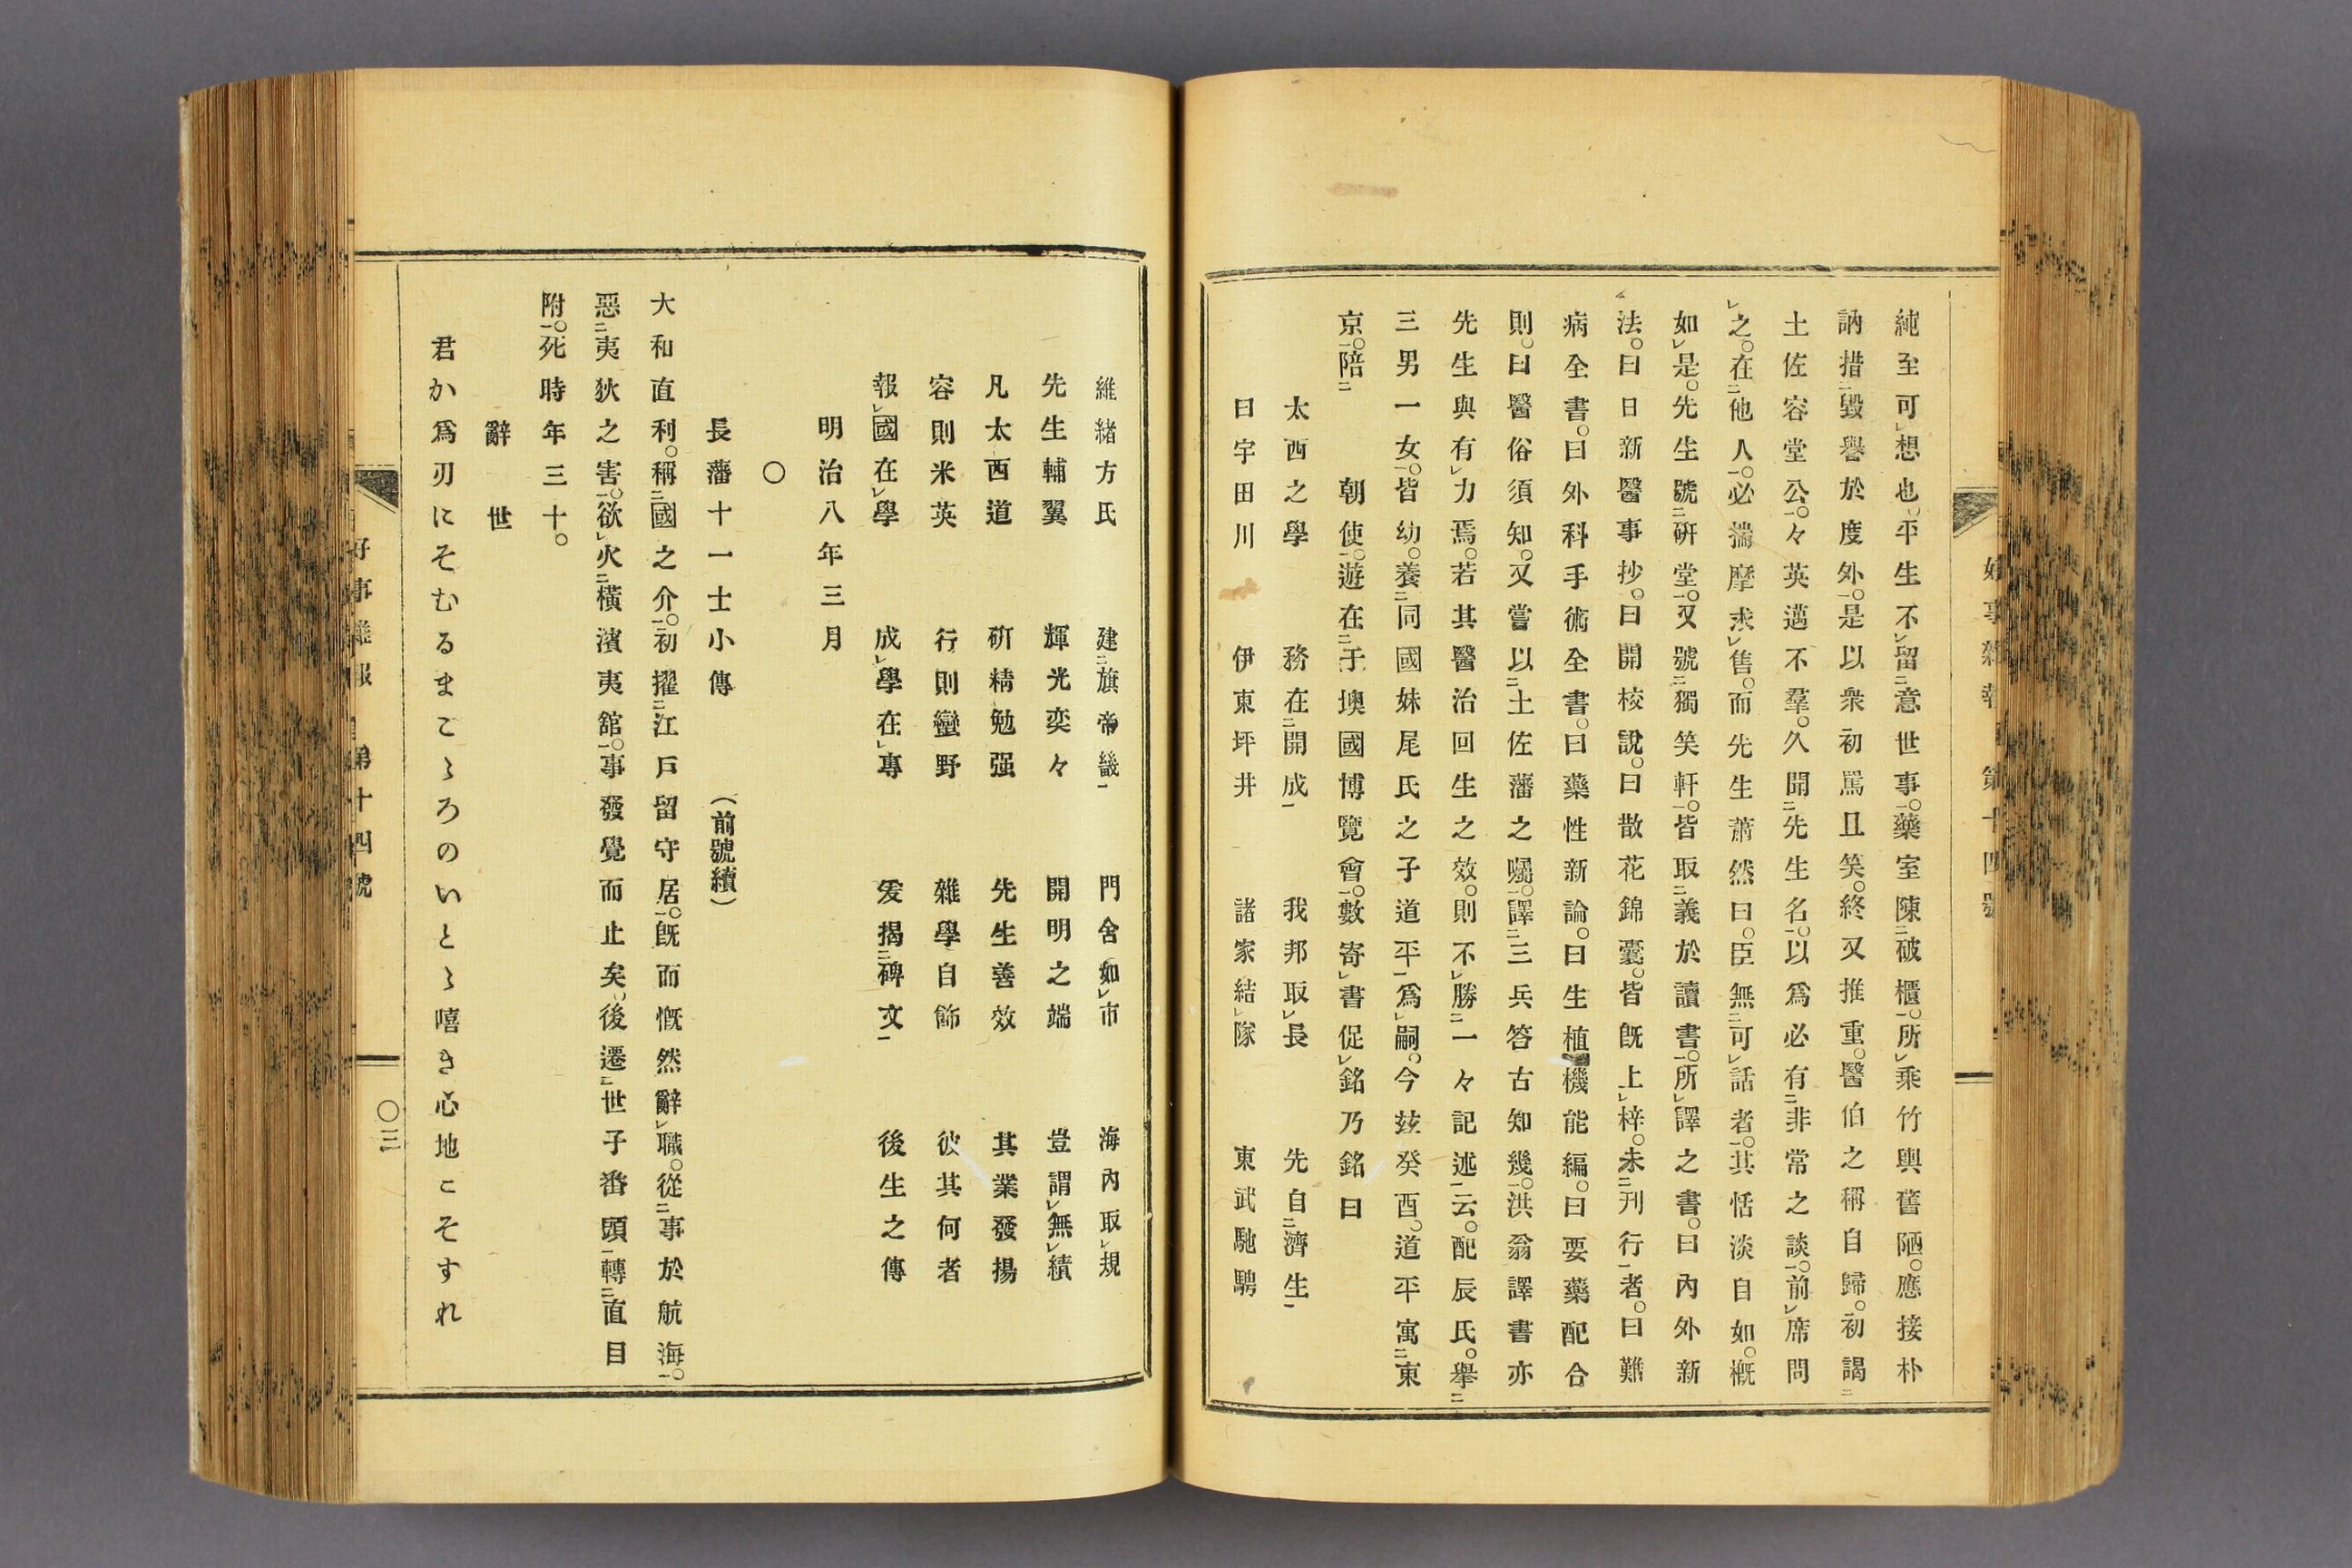 純至可レ想也。平生不レ留二意世事一。藥室陳二破櫃一。所レ乘竹輿舊陋。應接朴
訥措二毀譽於度外一。是以衆初罵且笑。終又推重。醫伯之稱自歸。初謁二
土佐容堂公一。々英邁不羣。久聞二先生名一。以爲必有二非常之談一。前レ席問
レ之。在二他人一。必揣摩求レ售。而先生蕭然曰。臣無二可レ話者一。其恬淡自如。槪
如レ是。先生號二硏堂一。又號二獨笑軒一。皆取二義於讀書一。所レ譯之書。曰內外新
法。曰日新醫事抄。曰開校說。曰散花錦囊。皆既上レ梓。未二刊行一者。曰難
病全書。曰外科手術全書。曰藥性新論。曰生植機能編。曰要藥配合
則。曰醫俗須知。又嘗以二土佐藩之囑一。譯二三兵答古知幾一。洪翁譯書亦
先生與有レ力焉。若其醫治回生之效。則不レ勝二一々記述一云。配辰氏。擧二
三男一女一。皆幼。養二同國妹尾氏之子道平一爲レ嗣。今玆癸酉。道平寓二東
京一。陪二　　朝使一。遊在二于墺國博覽會一。數寄レ書促レ銘乃銘曰
太西之學　　務在二開成一　　我邦取レ長　　先自二濟生一
曰宇田川　　伊東坪井　　諸家結レ隊　　東武馳騁
好事雜報　第十四號
維緖方氏　　建二旗帝畿一　　門舍如レ市　　海內取レ規
先生輔翼　　輝光奕々　　開明之端　　豈謂レ無レ績
凡太西道　　硏精勉强　　先生善效　　其業發揚
容則米英　　行則蠻野　　雜學自飾　　彼其何者
報レ國在レ學　　成レ學在レ專　　爰揭二碑文一　　後生之傳
明治八年三月
〇
長藩十一士小傳　　（前號續）
大和直利。稱二國之介一。初擢二江戶留守居一。既而慨然辭レ職。從二事於航海一。
惡二夷狄之害一。欲レ火二橫濱夷館一。事發覺而止矣。後遷二世子番頭一轉二直目
附一。死時年三十。
辭世
君か爲刃にそむるまこゝろのいとゝ嘻き心地こそすれ
好事雜報　第十四號
〇三